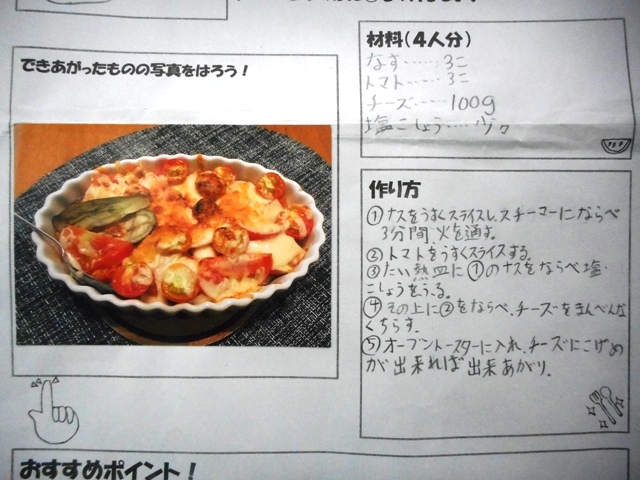 できあがったものの写真をはろう!
材料(4人分)
なす……3コ
トマト……3コ
チーズ……100g
塩こしょう……少々
作り方
①ナスをうすくスライスし、スチーマーにならべ
3分間、火を通す。
②トマトをうすくスライスする。
③たい熱皿に①のナスをならべ塩・
こしょうをふる。
④その上に②をならべ、チーズをまんべんな
くちらす。
⑤オーブントースターに入れ、チーズにこげめ
が出来れば出来あがり。
おすすめポイント!